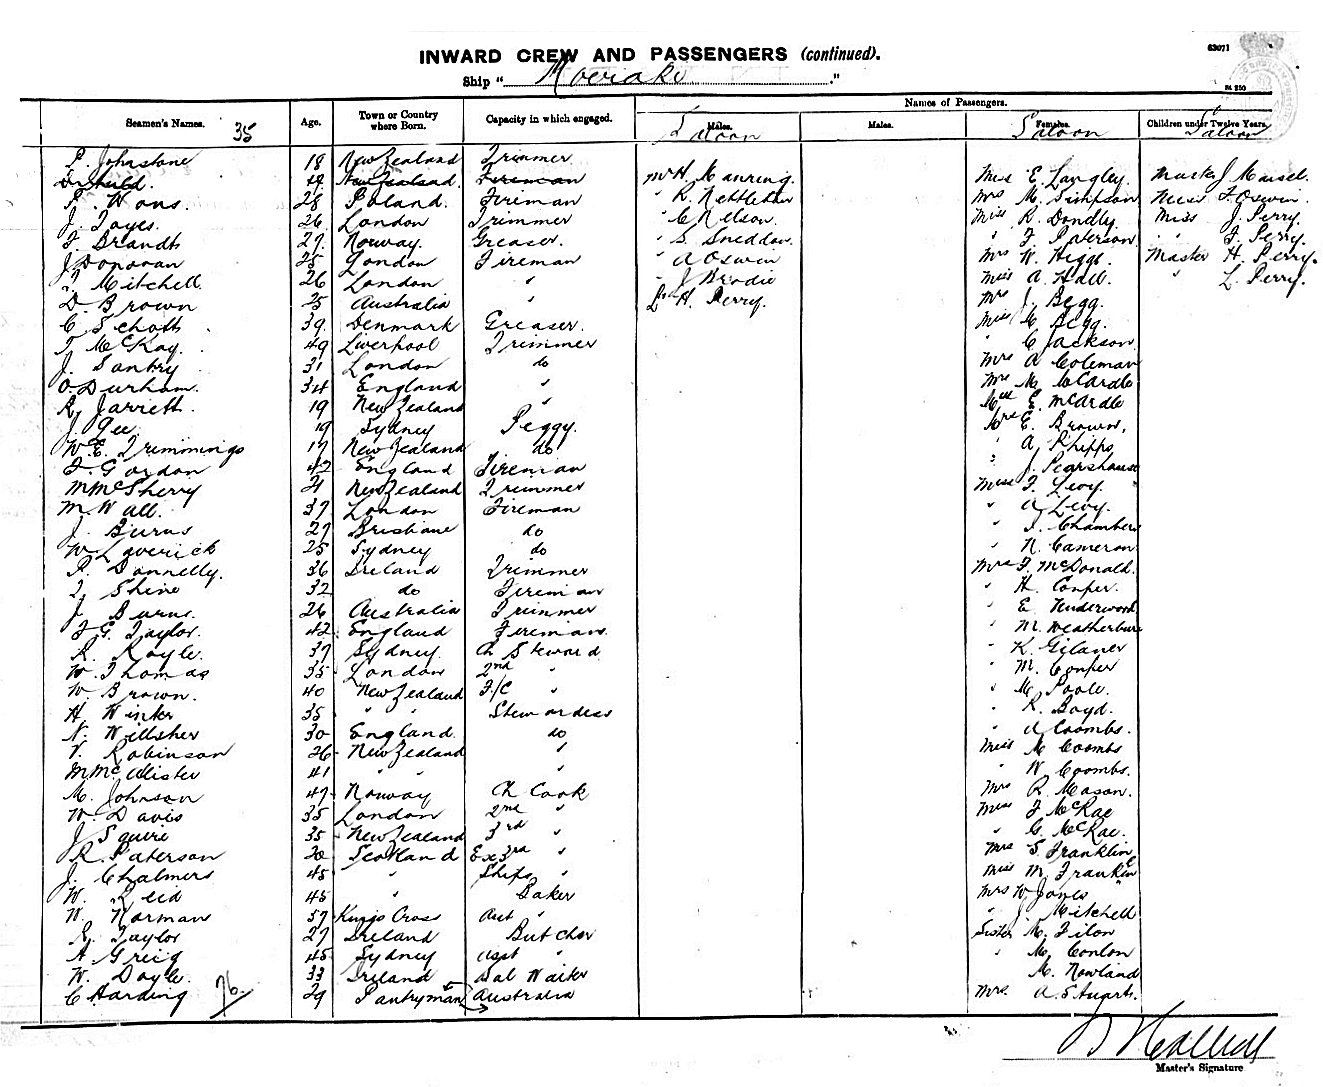 63071
INWARD CREW AND PASSENGERS (continued).
Ship " Moeraki ."
Names of Passengers.
Seamen's Names. 35 Age. Town or Country where Born. Capacity in which engaged. Males. Saloon Males. Females. Saloon Children under Twelve Years. Saloon
P. Johnstone 18 New Zealand Trimmer Mr H. Manring. Miss E. Langley. Master J. Maisel.
New Zealand. Fireman " R. Nettleton Mrs M. Simpson Miss F. Oswin.
28 Poland. Fireman " C. Nelson. Miss R. Dondly. Miss J. Perry.
J. Joyes. 26 London Trimmer " S. Sneddon. " F Paterson. " F. Perry.
F. Brandt 27. Norway. Greaser. " A Oswin Mrs W. Higgs. Master H. Perry.
J Donovan 25 London Fireman " J Brodie Miss A. Hall. " L. Perry.
T. Mitchell. 26 London " Dr H. Perry. Mrs J. Begg.
D. Brown 25 Australia " Miss C. Begg.
C. Schott 39. Denmark Greaser. " C Jackson.
T. McKay. 49 Liverpool Trimmer Mrs A Coleman
J. Santry 31 London do Mrs M. McCardle
O. Durham. 34 England " Miss E. McArdle
R. Jarrett. 19 New Zealand " Mrs E. Brown,
J. Gee. 19 Sydney Peggy. " A. Phipps
W. E. Trimmings 17 New Zealand do " J. Pearshouse
F. Gordon 42 England Fireman Miss F. Levy.
M McSherry 21 New Zealand Trimmer " A Levy.
M. Wall. 37 London Fireman " Chambers
J. Burns 27 Brisbane do " N. Cameron
W. Laverick 25 Sydney do Mrs F. McDonald.
P. Donnelly. 36 Ireland Trimmer " H. Cooper.
T. Shine 32 do Fireman " E. Underwood.
J. Burns. 26 Australia Trimmer " M. Weatherburn
F G. Taylor. 42 England Fireman. " K. Gilaner
R. Royle. 37 Sydney. Ch Steward " M. Cooper
W. Thomas 35 London 2nd " " M. Poole.
W. Brown. 40 New Zealand F/C " " R. Boyd.
H. Winks 35 " " Stewardess " A Coombs.
N. Willsher 30 England. do Miss M Coombs
V. Robinson 26 New Zealand " " W. Coombs.
M McAlister 41 " " " Mrs R. Mason.
M. Johnson 47 Norway Ch Cook Miss F McRae
W. Davis 35 London 2nd " " G. McRae.
J Squire 35 New Zealand 3rd " Mrs S Franklin
R. Paterson 30 Scotland Ex 3rd " Miss M. Franklin
J. Chalmers 45 " Ships " Mrs W Jones
W. Reid 45 " Baker " J. Mitchell
W. Norman 37 Kings Cross Asst " Sister M. Filan
R. Taylor 27 Ireland Butcher " M. Conlon
A. Greig 45 Sydney Asst " M. Rowland
W. Doyle. 33 Ireland Sal Waiter Mrs. A. Stuart.
C Harding 76. 29 Pantryman Australia
Master's Signature